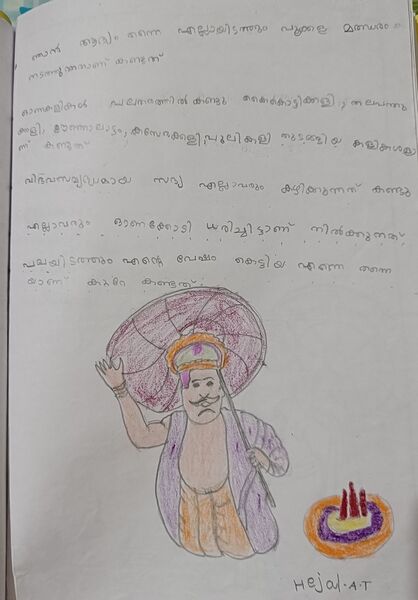 ഞാൻ ആദ്യം തന്നെ എല്ലായിടത്തും പൂക്കള മത്സരം
നടത്തുന്നതാണ് കണ്ടത്
ഓണകളികൾ പലതരത്തിൽ കണ്ടു കൈകൊട്ടിക്കളി, തലപന്തു
കളി, ഊഞ്ഞാലാട്ടം, കസേരകളി, പുലികളി തുടങ്ങിയ കളികളാ
ണ് കണ്ടത്
വിഭവസമൃദ്ധമായ സദ്യ എല്ലാവരും കഴിക്കുന്നത് കണ്ടു
എല്ലാവരും ഓണക്കോടി ധരിച്ചിട്ടാണ് നിൽക്കുന്നത്
പലയിടത്തും എന്റെ വേഷം കെട്ടിയ എന്നെ തന്നെ
യാണ് കൂറേ കണ്ടത്.
Hejal.A.T